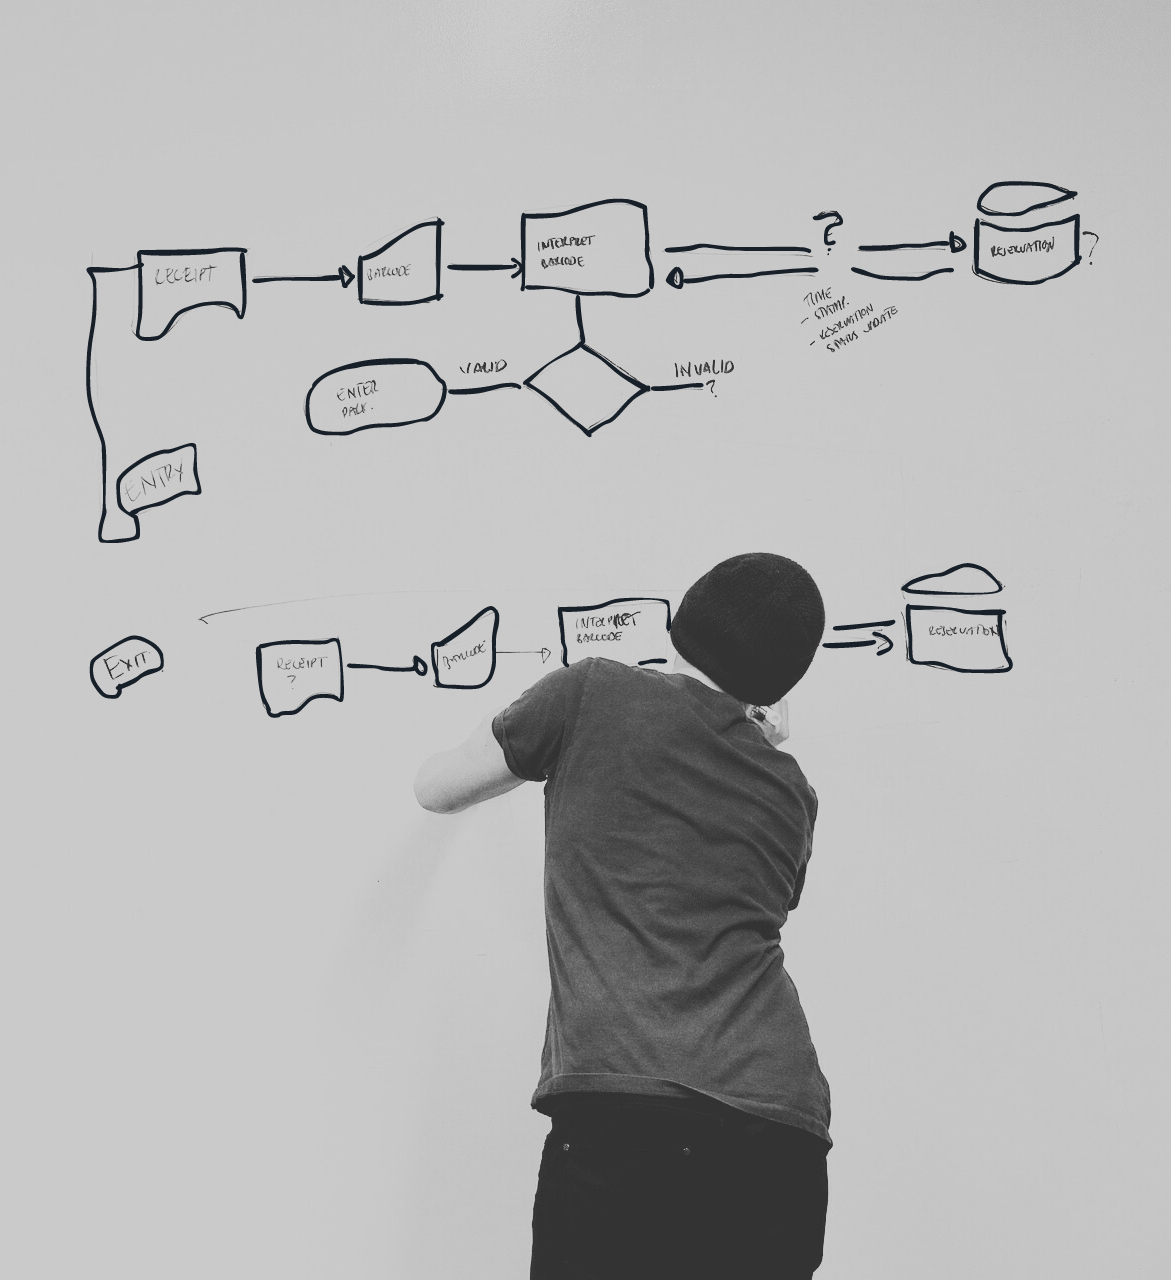 RECEIPT
BARCODE
INTERPRET
BARCODE
?
RESERVATION
?
TIME
- STAMP.
- RESERVATION
STATUS UPDATE
ENTER
PARK.
VALID
INVALID
?
ENTRY
EXIT
RECEIPT
?
BARCODE
INTERPRET
BARCODE
RESERVATION